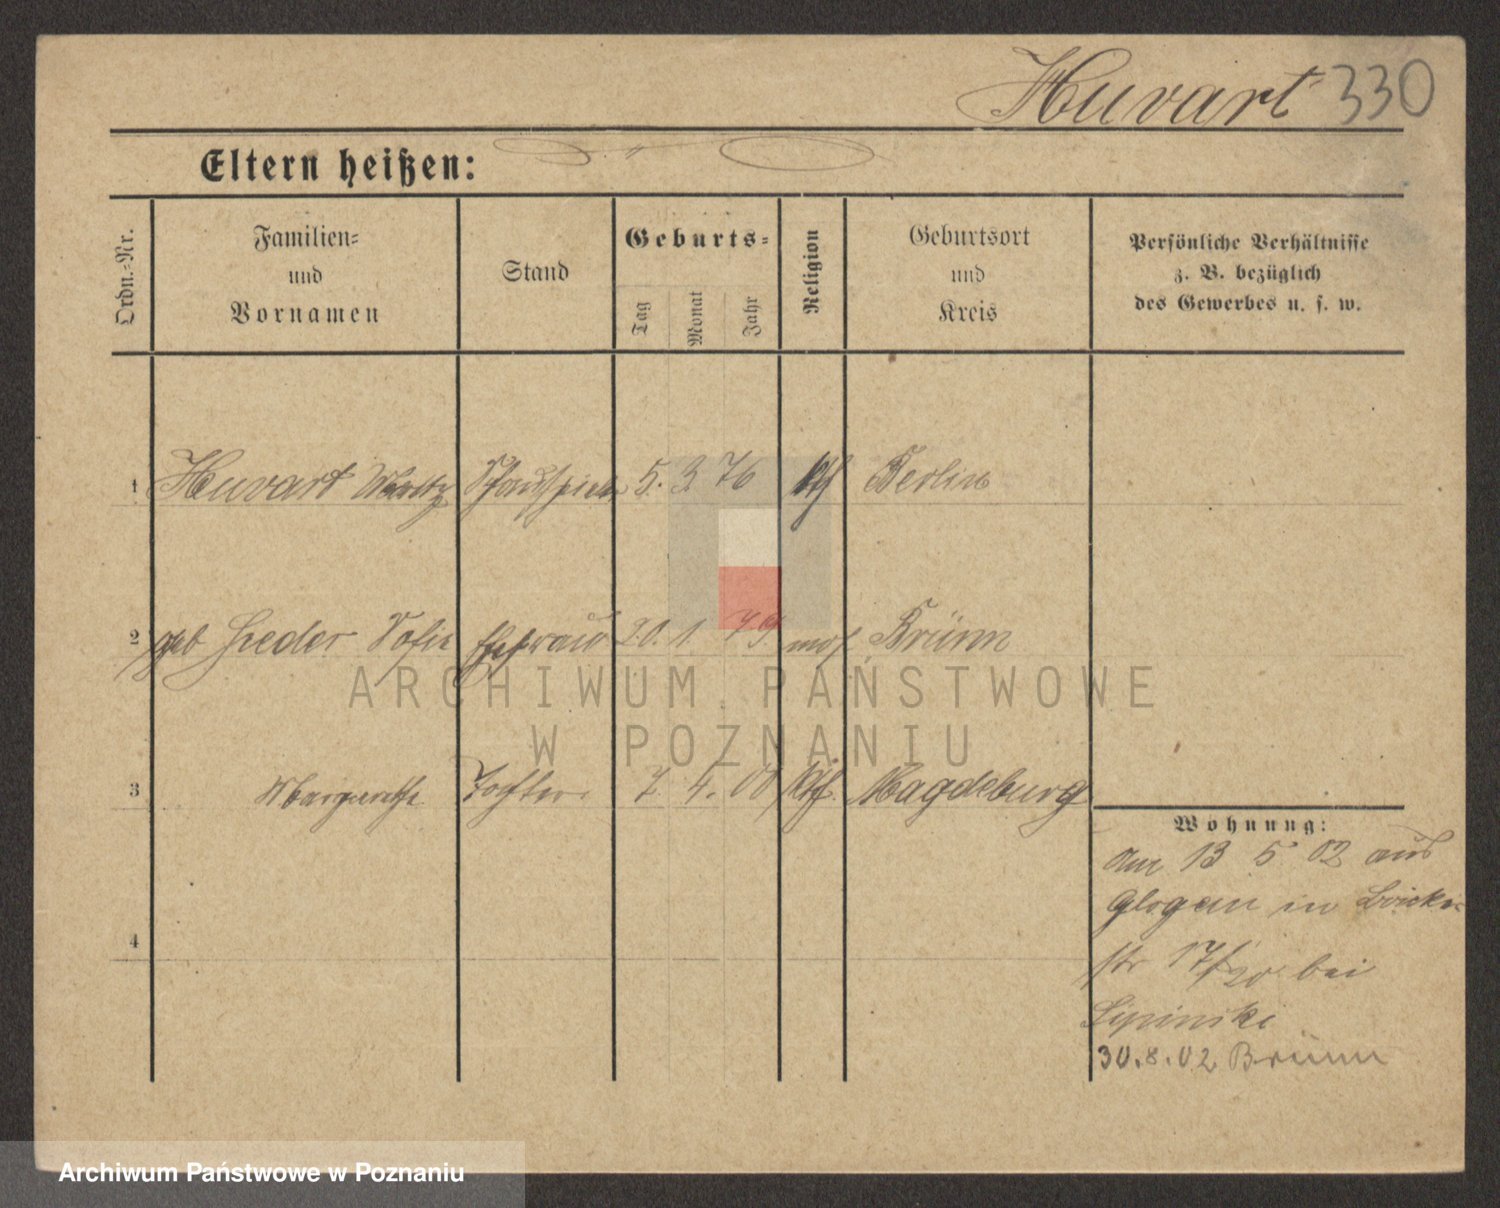 Huvart 330
Eltern heißen:
Ordn.-Nr.
Familien-
und
Vornamen
Stand
Geburts-
Tag
Monat
Jahr
Religion
Geburtsort
und
Kreis
Persönliche Verhältnisse
z. B. bezüglich
des Gewerbes u. s. w.
1 Huvart Moritz Schauspieler 5. 3. 76 Berlin
2 geb Sofie Ehefrau 20. 1. 79 mos. Brünn
ARCHIWUM PAŃSTWOWE
W POZNANIU
3 Margarethe Tochter 7. 4. 00 Magdeburg
Wohnung:
am 13 5 02 aus
Glogau in
str 17/20 bei
Lipinski
30.8.02 Brünn
4
Archiwum Państwowe w Poznaniu